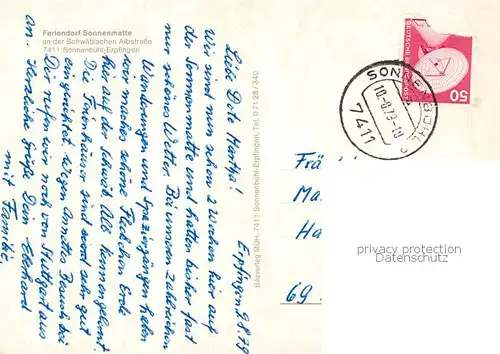 Feriendorf Sonnenmatte
an der Schwäbischen Albstraße
7411 Sonnenbühl-Erpfingen
Erpfingen 9.8.79
Liebe Dote Hertha!
Wir sind nun schon 2 Wochen hier auf
der Sonnenmatte und hatten bisher fast
nur schönes Wetter. Bei unseren zahlreichen
Wanderungen und Spaziergängen haben
wir manches schöne Fleckchen Erde
hier auf der Schwäb. Alb kennengelernt.
Die Ferienhäuser sind sehr gut
eingerichtet. Wegen Annettes Besuch bei
Dir rufen wir noch von Stuttgart aus
an. Herzliche Grüße Dein Eberhard
mit Familie
Bauverlag MÜH, 7411 Sonnenbühl-Erpfingen, Tel. 0 71 28 / 340
DEUTSCHE BUNDESPOST
50
SONNENBÜHL 2
10.-8.79.-18
7411
Frä
Ma
Ha
69
privacy protection
Datenschutz